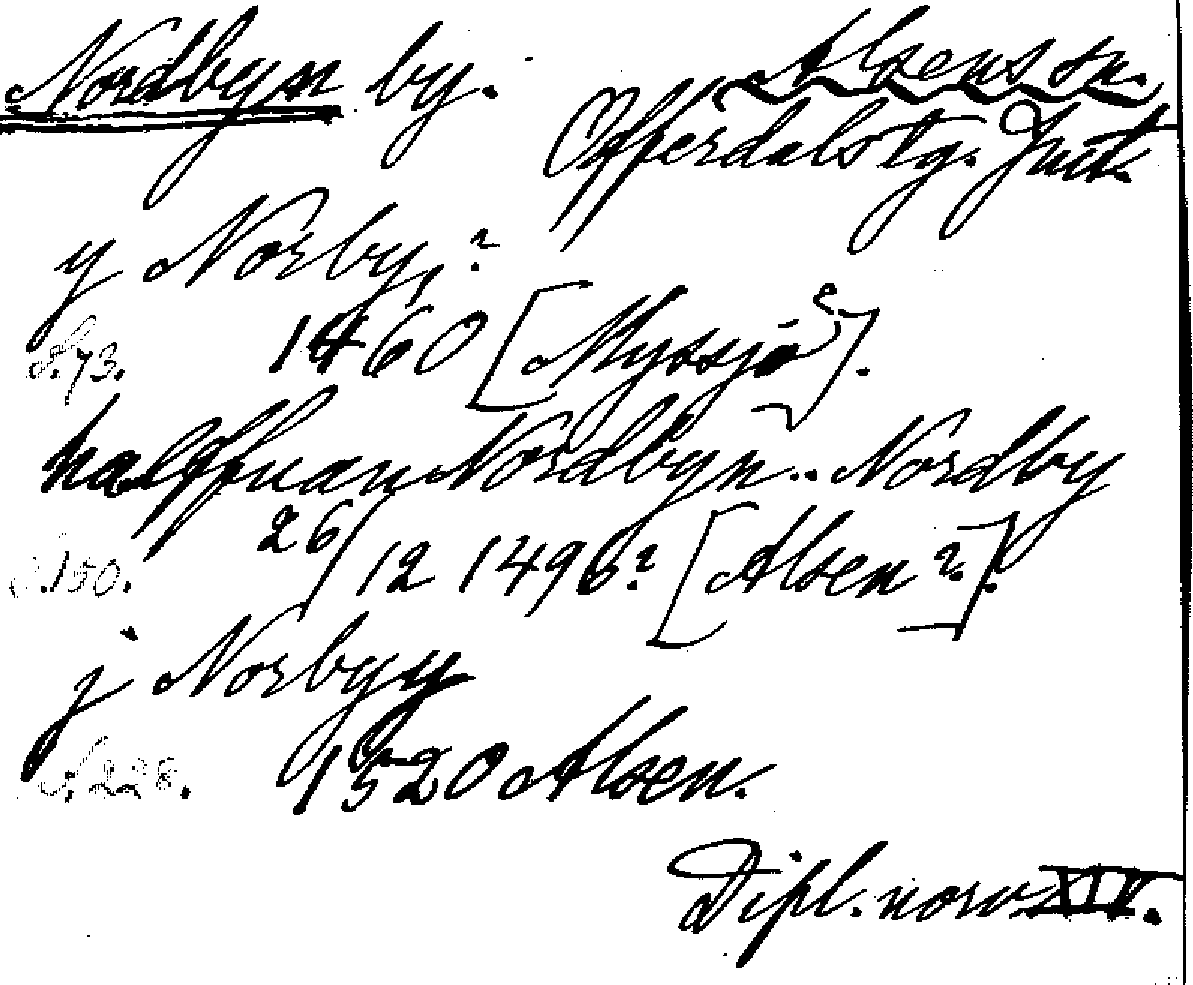 Nordbyn by. Alsens sn.
Offerdals tg. Jmtl.
y Norby,?
S. 73. 1460 [Myssjö?].
halffuan Nordbyn.. Nordby
S. 150. 26/12 1496? [Alsen?].
j Norbyy
S. 228. 1520 Alsen.
Dipl. norv. XIV.